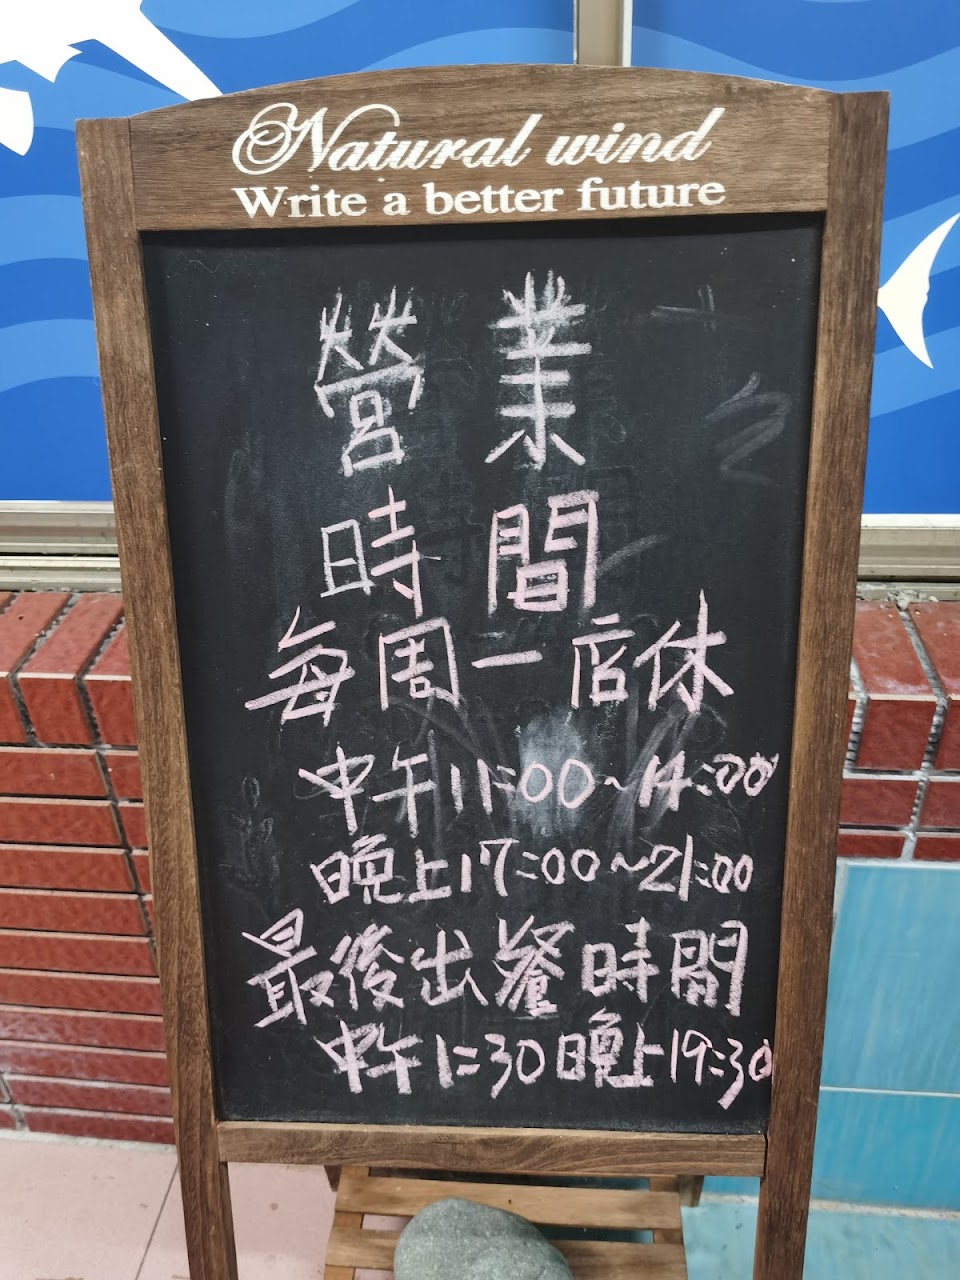 Natural wind
Write a better future
營業
時間
每周一店休
中午11:00~14:00
晚上17:00~21:00
最後出餐時間
中午1:30晚上19:30